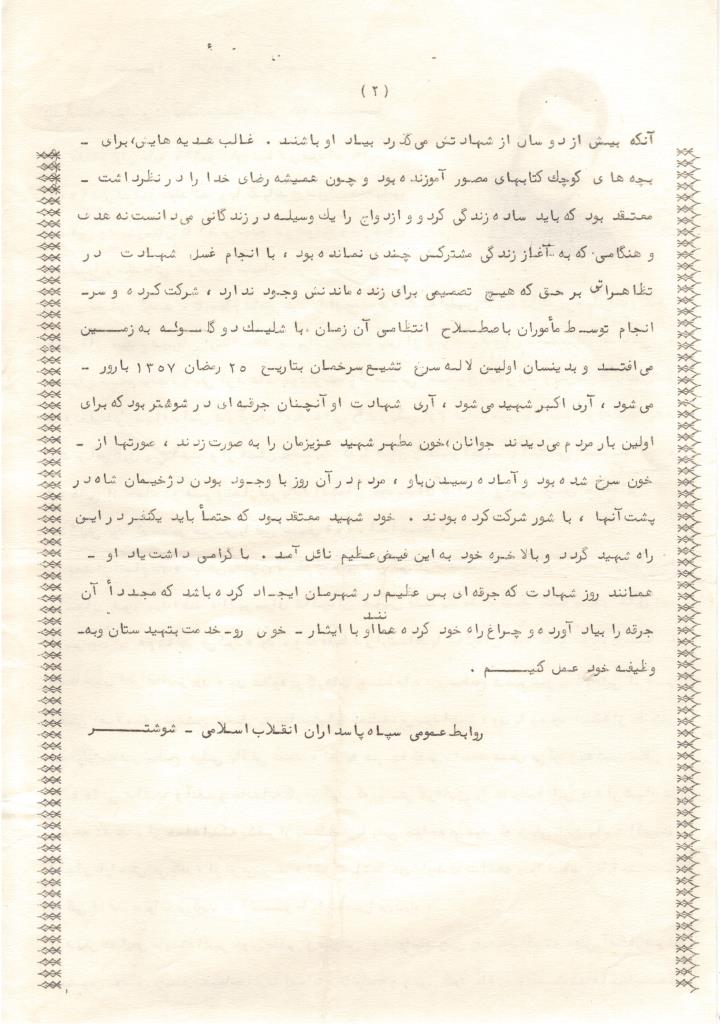 (۲)
آنکه بیش از دو سال از شهادتش می‌گذرد بیاد او باشند . غالب هدیه هایش برای -
بچه های کوچک کتابهای مصور آموزنده بود و چون همیشه رضای خدا را در نظر داشت -
معتقد بود که باید ساده زندگی کرد و ازدواج را یک وسیله در زندگانی می دانست نه هدف
و هنگامی که به آغاز زندگی مشترکش چندی نمانده بود ، با انجام غسل شهادت در
تظاهراتی بر حق که هیچ تصمیمی برای زنده ماندنش وجود ندارد ، شرکت کرده و سر-
انجام توسط مأموران باصطلاح انتظامی آن زمان ، با شلیک دو گلوله به زمین
می افتد و بدینسان اولین لاله سرخ تشیع سرخمان بتاریخ ۲۵ رمضان ۱۳۵۷ بارور -
می شود ، آری اکبر شهید می شود ، آری شهادت او آنچنان جرقه ای در شوشتر بود که برای
اولین بار مردم می دیدند جوانان ، خون مطهر شهید عزیزمان را به صورت زدند ، صورتها از -
خون سرخ شده بود و آماده رسیدن باو ، مردم در آن روز با وجود بودن دژخیمان شاه در
پشت آنها ، با شور شرکت کرده بودند . خود شهید معتقد بود که حتماً باید یکنفر در این
راه شهید گردد و بالاخره خود به این فیض عظیم نائل آمد . با گرامی داشت یاد او -
همانند روز شهادت که جرقه ای بس عظیم در شهرمان ایجاد کرده باشد که مجدداً آن
جرقه را بیاد آورده و چراغ راه خود کرده همانند او با ایثار - خون رو خدمت وبه-
وظیفه خود عمل کنیم .
روابط عمومی سپاه پاسداران انقلاب اسلامی - شوشتر